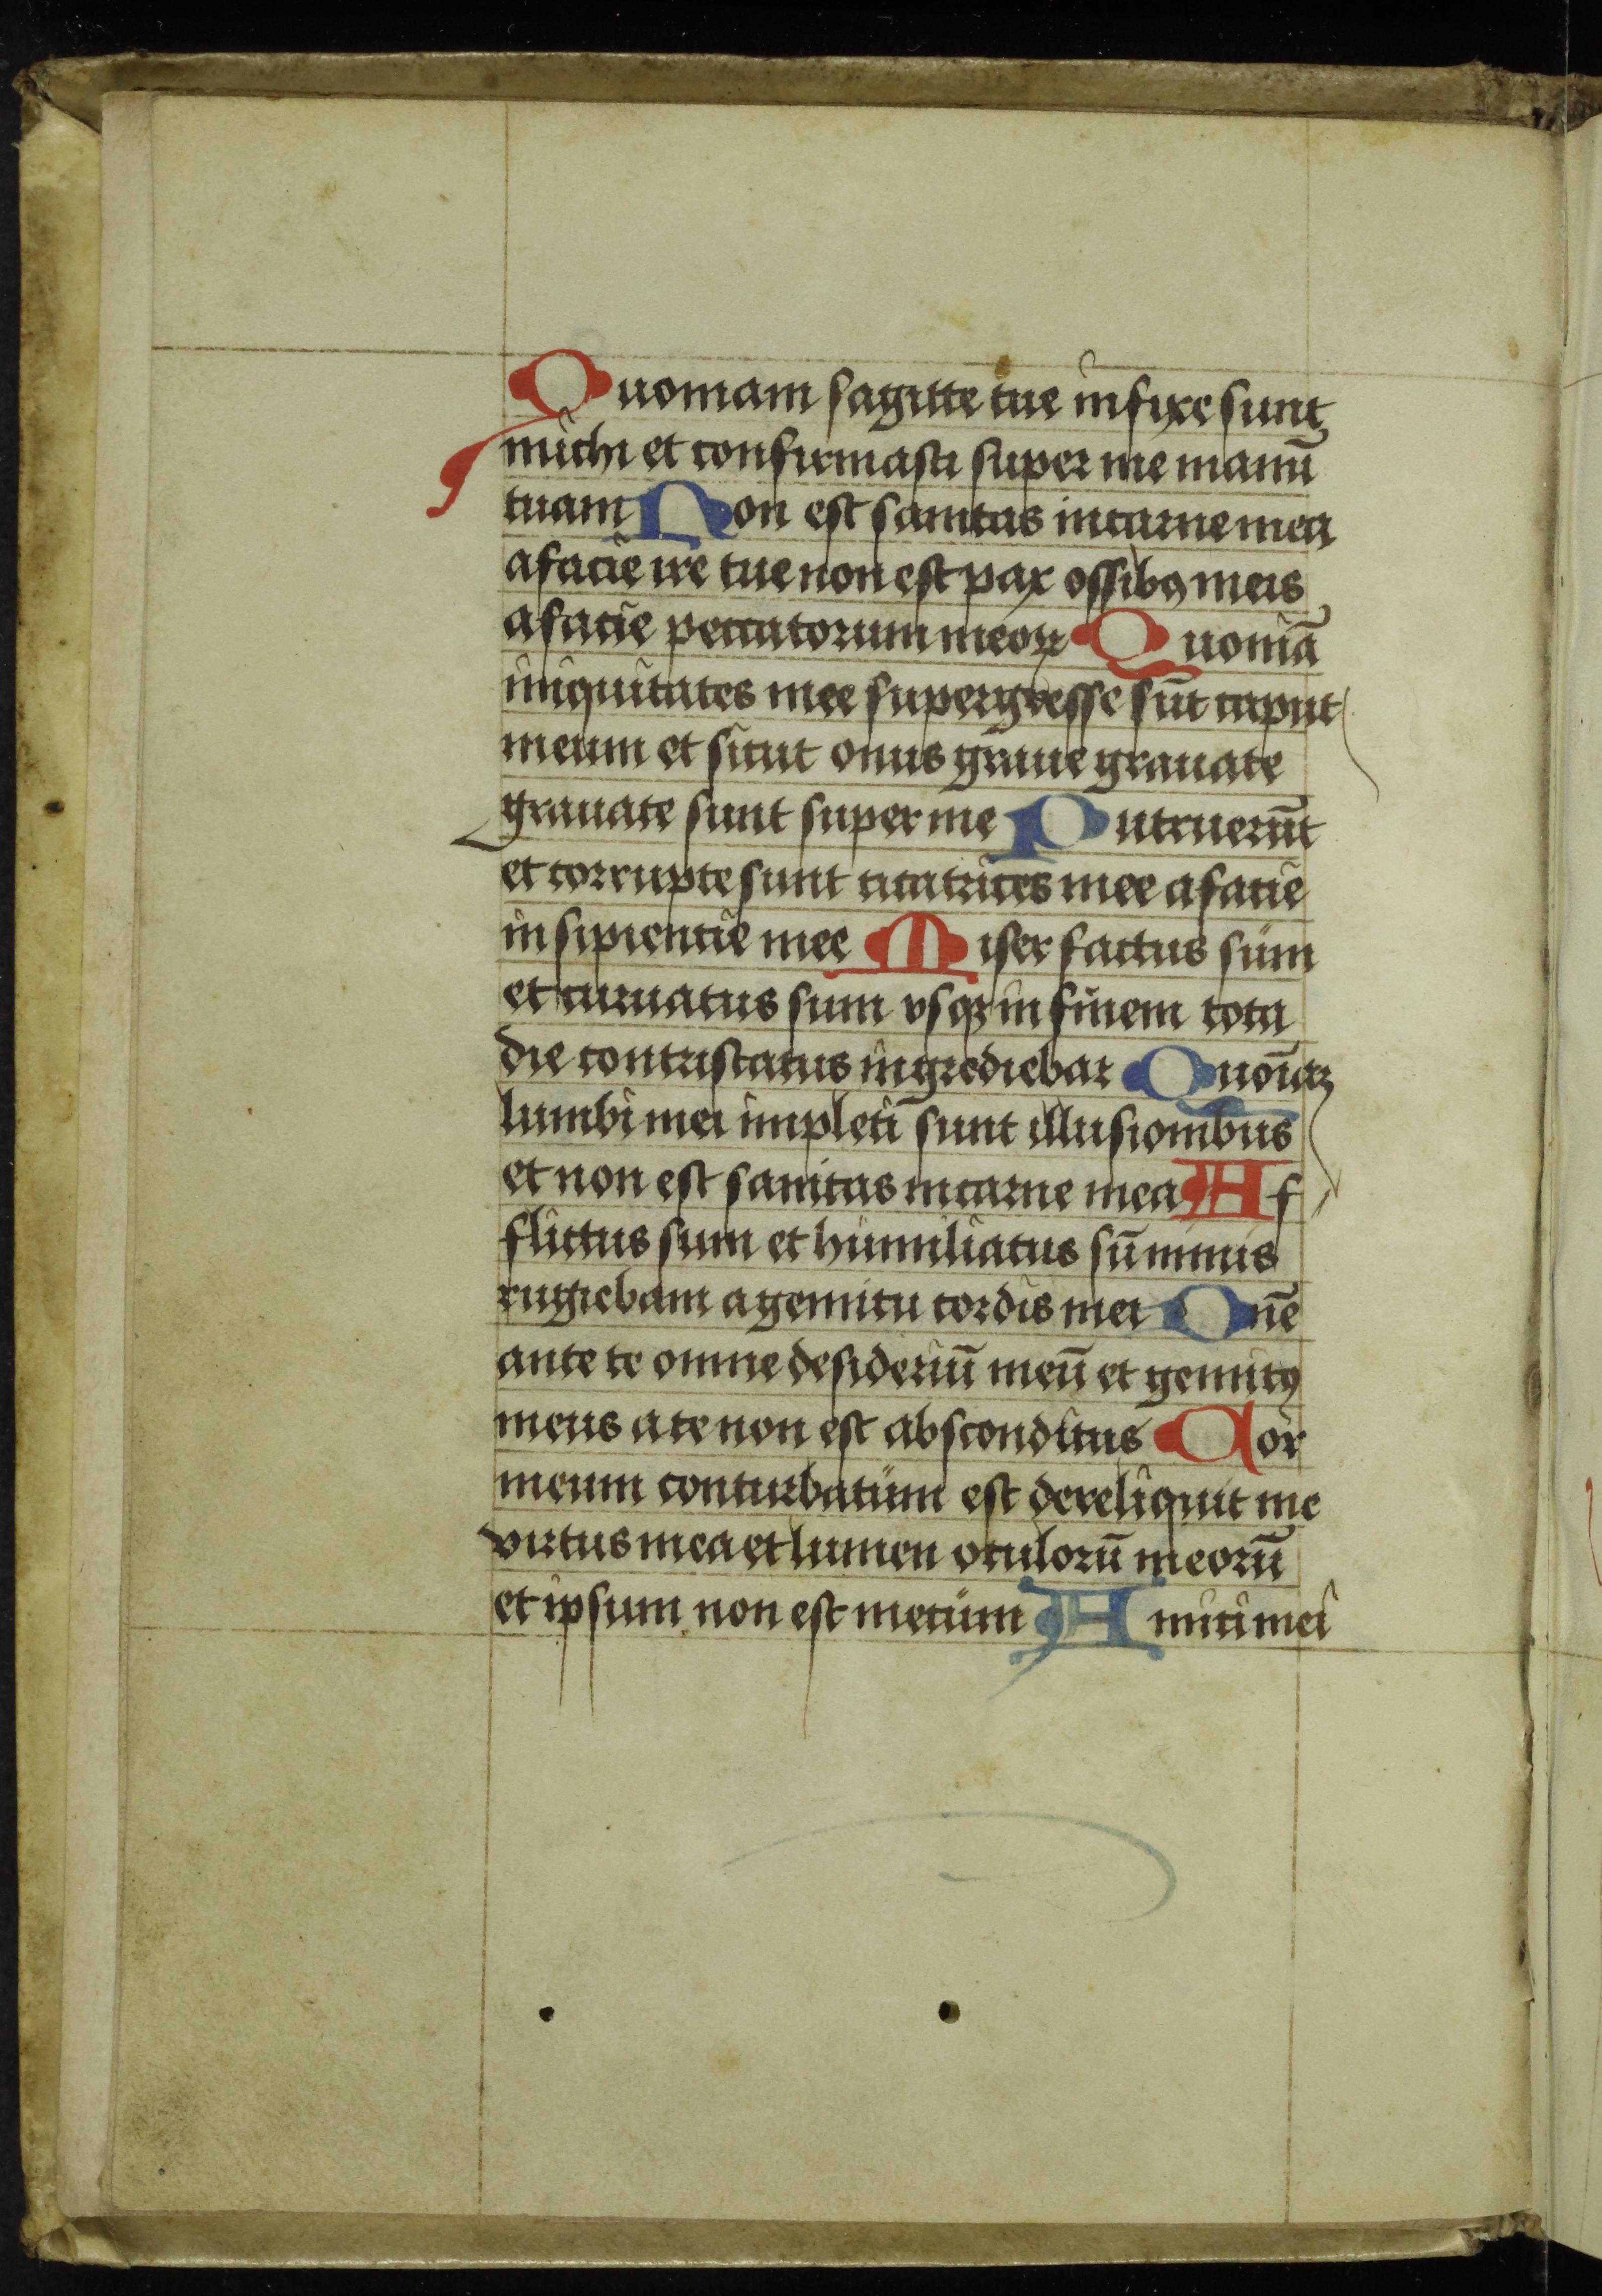 Quoniam sagitte tue infixe sunt
michi et confirmasti super me manū
tuam Non est sanitas in carne mea
a facie ire tue non est pax ossibꝰ meis
a facie peccatorum meoꝝ Quoniā
iniquitates mee supergresse sūt caput
meum et sicut onus graue grauate
grauate sunt super me Putruerūt
et corrupte sunt cicatrices mee a facie
insipientie mee Miser factus sum
et curuatus sum vsqꝫ in finem tota
die contristatus ingrediebar Quoīaꝫ
lumbi mei impleti sunt illusionibus
et non est sanitas in carne mea Af
flictus sum et humiliatus sū nimis
rugiebam a gemitu cordis mei Dne̅
ante te omne desideriū meū et gemitꝰ
meus a te non est absconditus Cor
meum conturbatum est dereliquit me
virtus mea et lumen oculorū meorū
et ipsum non est mecum Amici mei